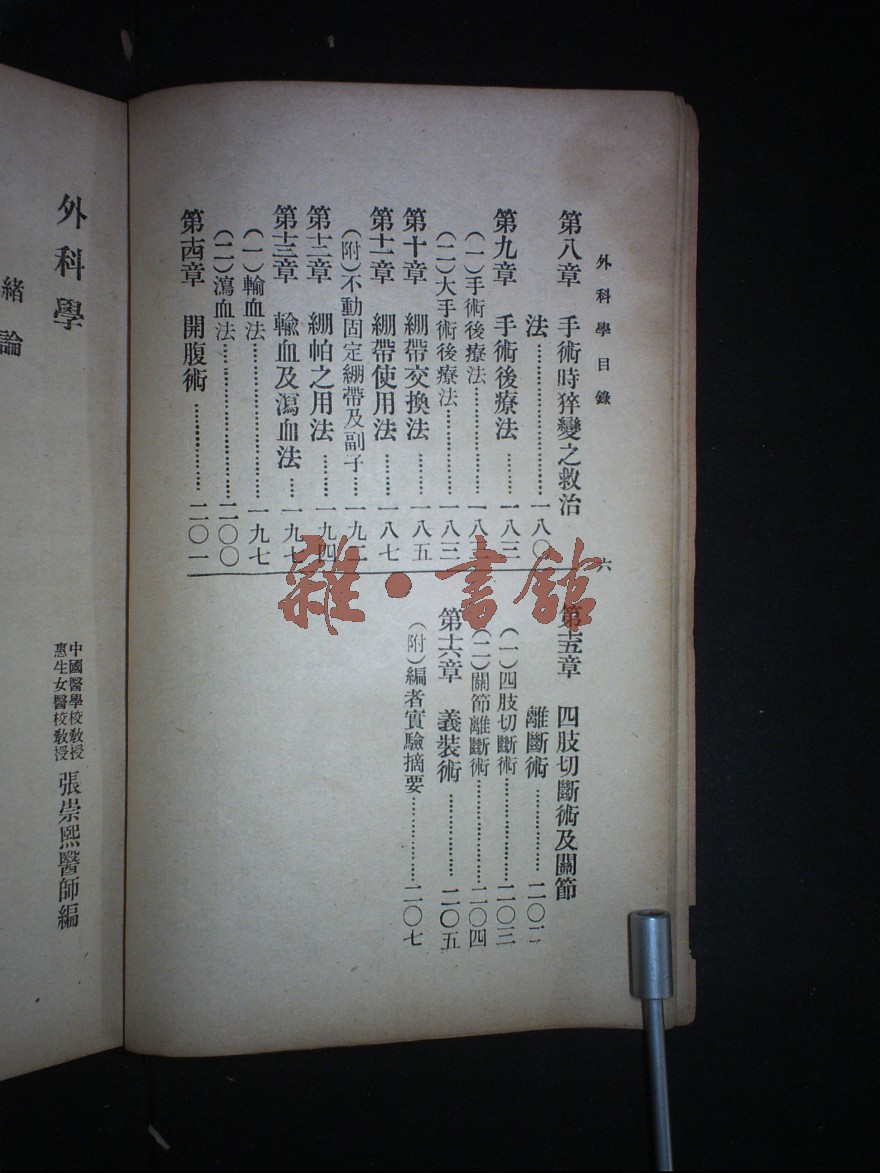 外科學目錄
六
第八章 手術時猝變之救治
法……………………一八〇
第九章 手術後療法………一八三
(一)手術後療法……………一八三
(二)大手術後療法…………一八三
第十章 綳帶交換法………一八五
第十一章 綳帶使用法……一八七
(附)不動固定綳帶及副子…一九二
第十二章 綳帕之用法……一九四
第十三章 輸血及瀉血法…一九七
(一)輸血法…………………一九七
(二)瀉血法…………………二〇〇
第十四章 開腹術…………二〇一
第十五章 四肢切斷術及關節
離斷術……………二〇二
(一)四肢切斷術……………二〇三
(二)關節離斷術……………二〇四
第十六章 義裝術…………二〇五
(附)編者實驗摘要…………二〇七
外科學
中國醫學校教授
惠生女醫校教授
張崇熙醫師編
緒論
雜·書館